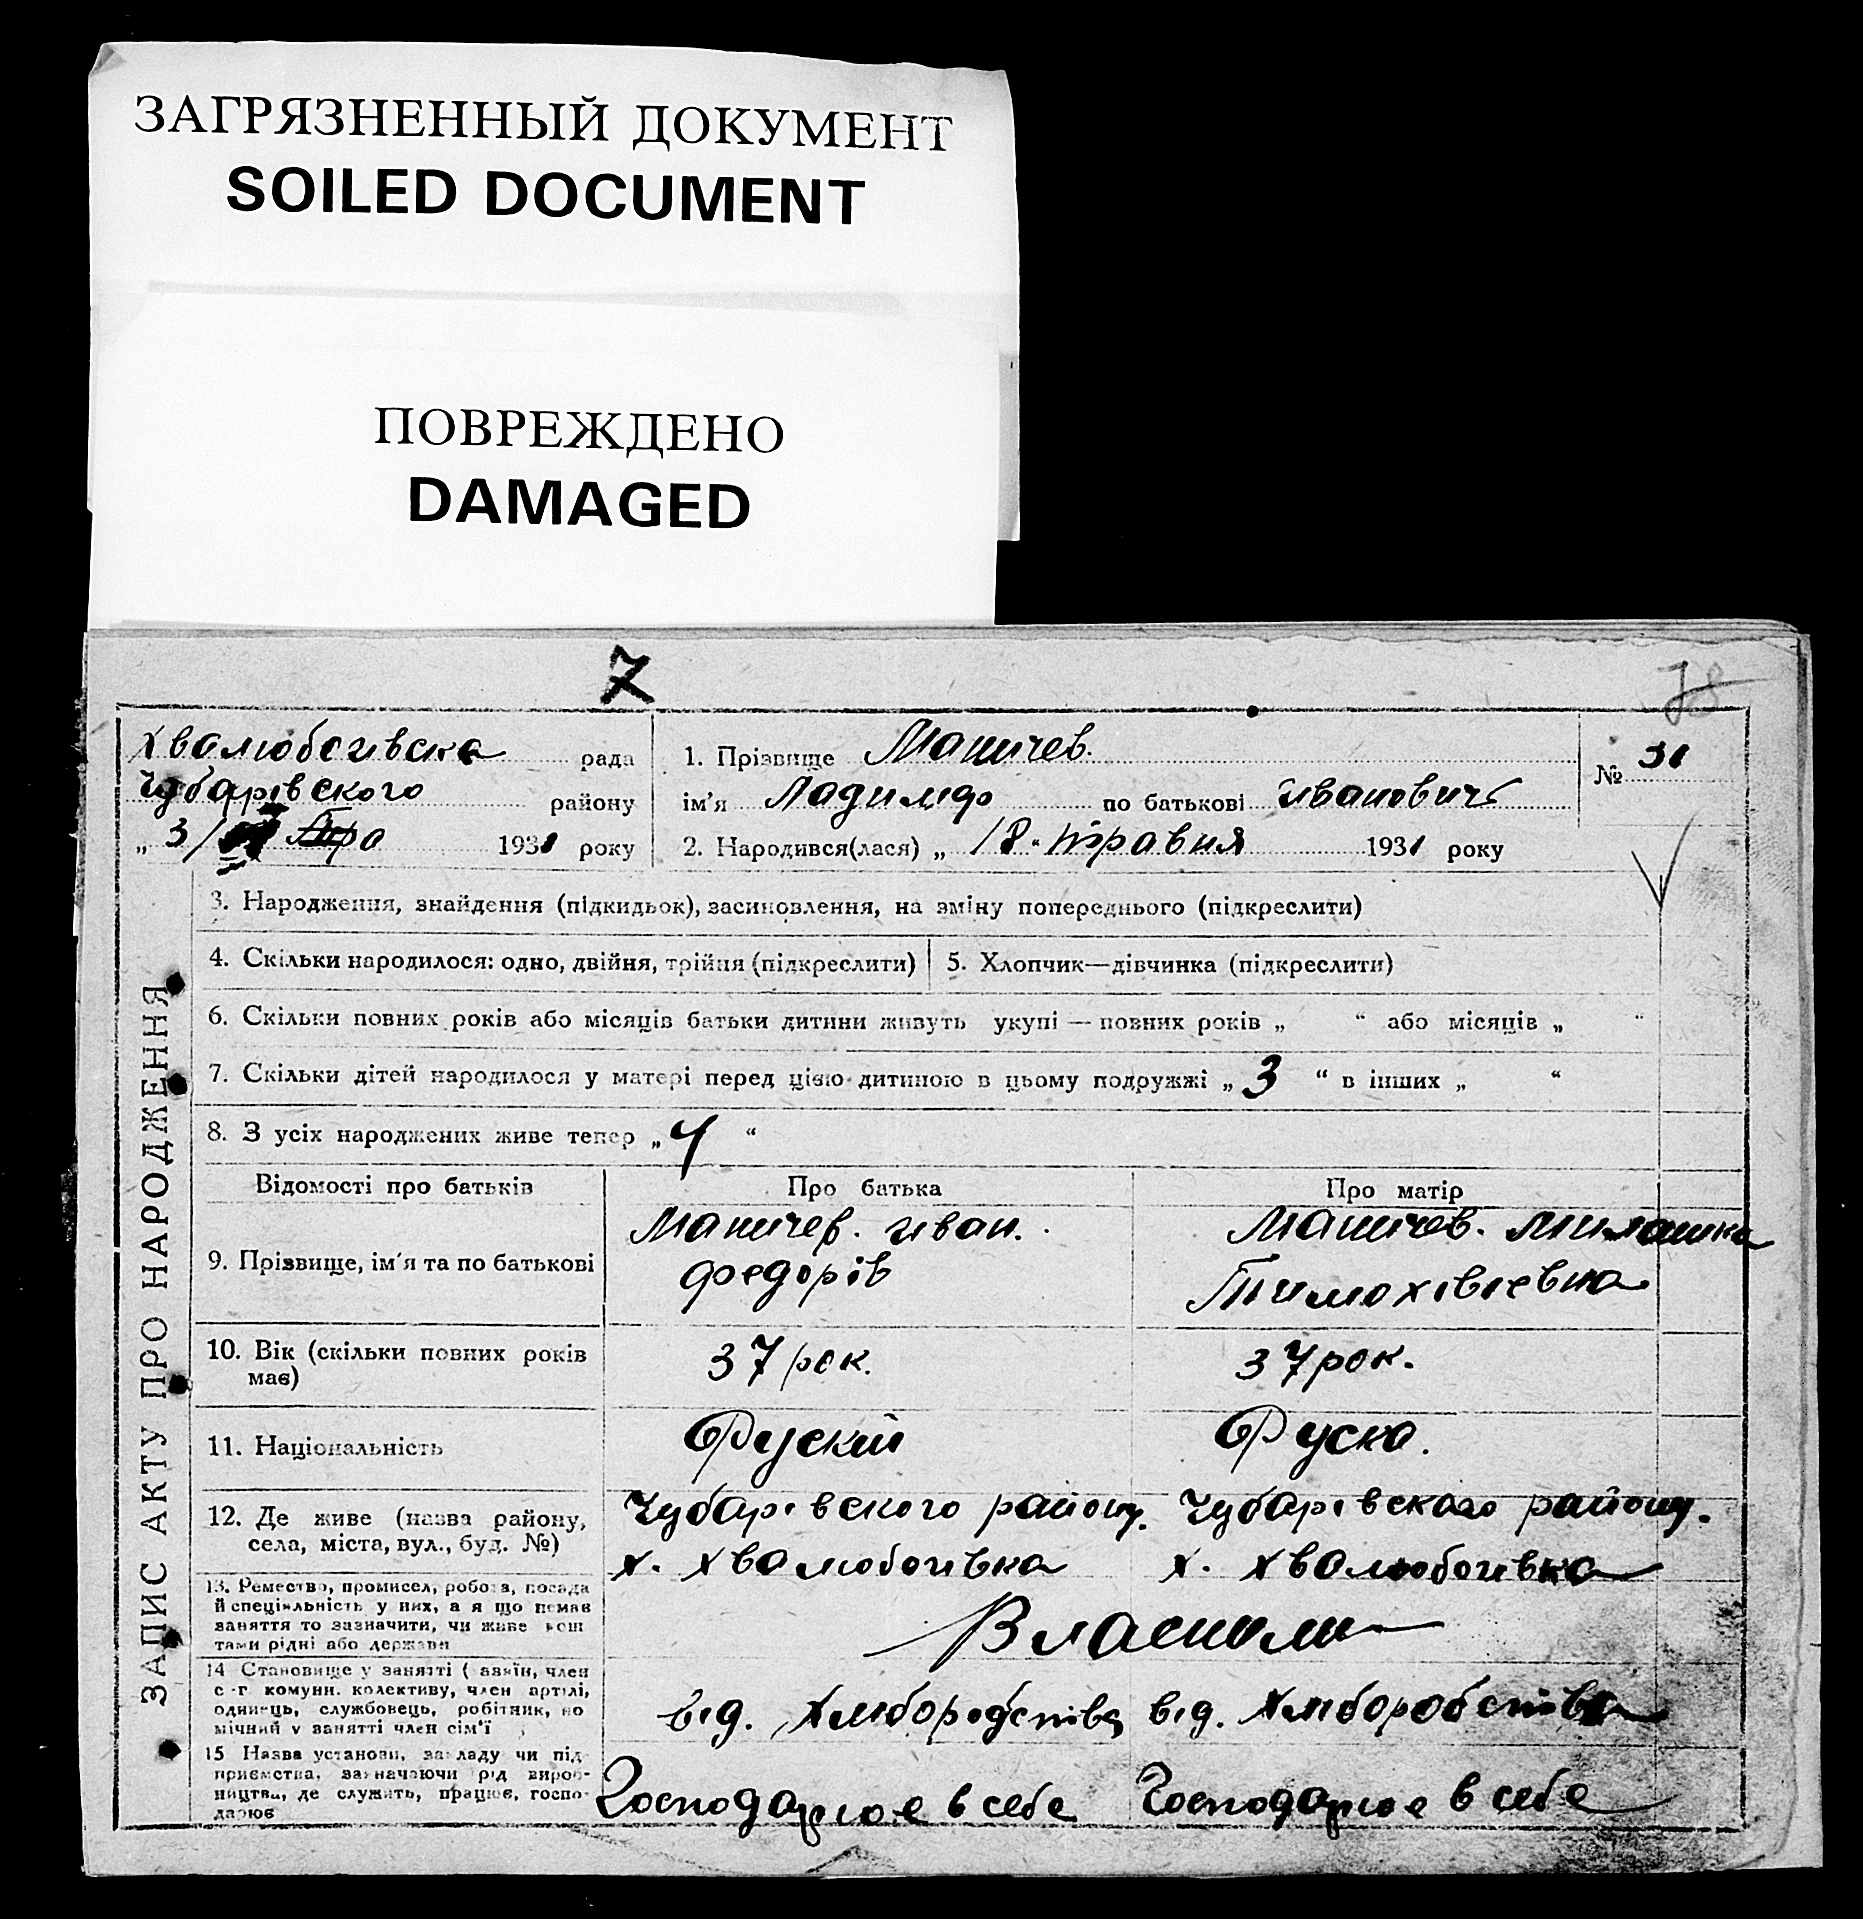 ЗАГРЯЗНЕННЫЙ ДОКУМЕНТ
SOILED DOCUMENT
ПОВРЕЖДЕНО
DAMAGED
7
78
Хвалюбогівска рада
Чубарівского району
„ 3/ 1931 року
1. Прізвище Маничев.
ім'я Ладимдр по батькові иванович
№ 31
2. Народився(лася) „ 18. травня 1931 року
ЗАПИС АКТУ ПРО НАРОДЖЕННЯ
3. Народження, знайдення (підкидьок), засиновлення, на зміну попереднього (підкреслити)
4. Скільки народилося: одно, двійня, трійня (підкреслити)
5. Хлопчик—дівчинка (підкреслити)
6. Скільки повних років або місяців батьки дитини живуть укупі — повних років „ “ або місяців „ “
7. Скільки дітей народилося у матері перед цією дитиною в цьому подружжі „ 3 “ в інших „ “
8. З усіх народжених живе тепер „ 4 “
Відомості про батьків
Про батька
Про матір
9. Прізвище, ім'я та по батькові
Маничев. иван.
федорів
Маничев.
Тимохівіевна
10. Вік (скільки повних років
має)
37 рок.
37 рок.
11. Національність
Руский
Руска.
12. Де живе (назва району,
села, міста, вул., буд. №)
Чубарівского району.
х. Хвалюбогівка
Чубарівского району.
х. Хвалюбогівка
13. Ремество, промисел, робота, посада
й спеціяльність у них, а я що немає
заняття то зазначити, чи живе кош
тами рідні або держави
Власними
14 Становище у занятті (
с-г комуни. колективу, член артілі,
одинець, службовець, робітник, по
мічний у занятті член сім'ї
від. Хліборобства
від. Хліборобства
15 Назва установи, закладу чи під-
приємства, зазначаючи рід вироб-
ництва, де служить, працює, госпо-
дарює
Господарює в себе
Господарює в себе